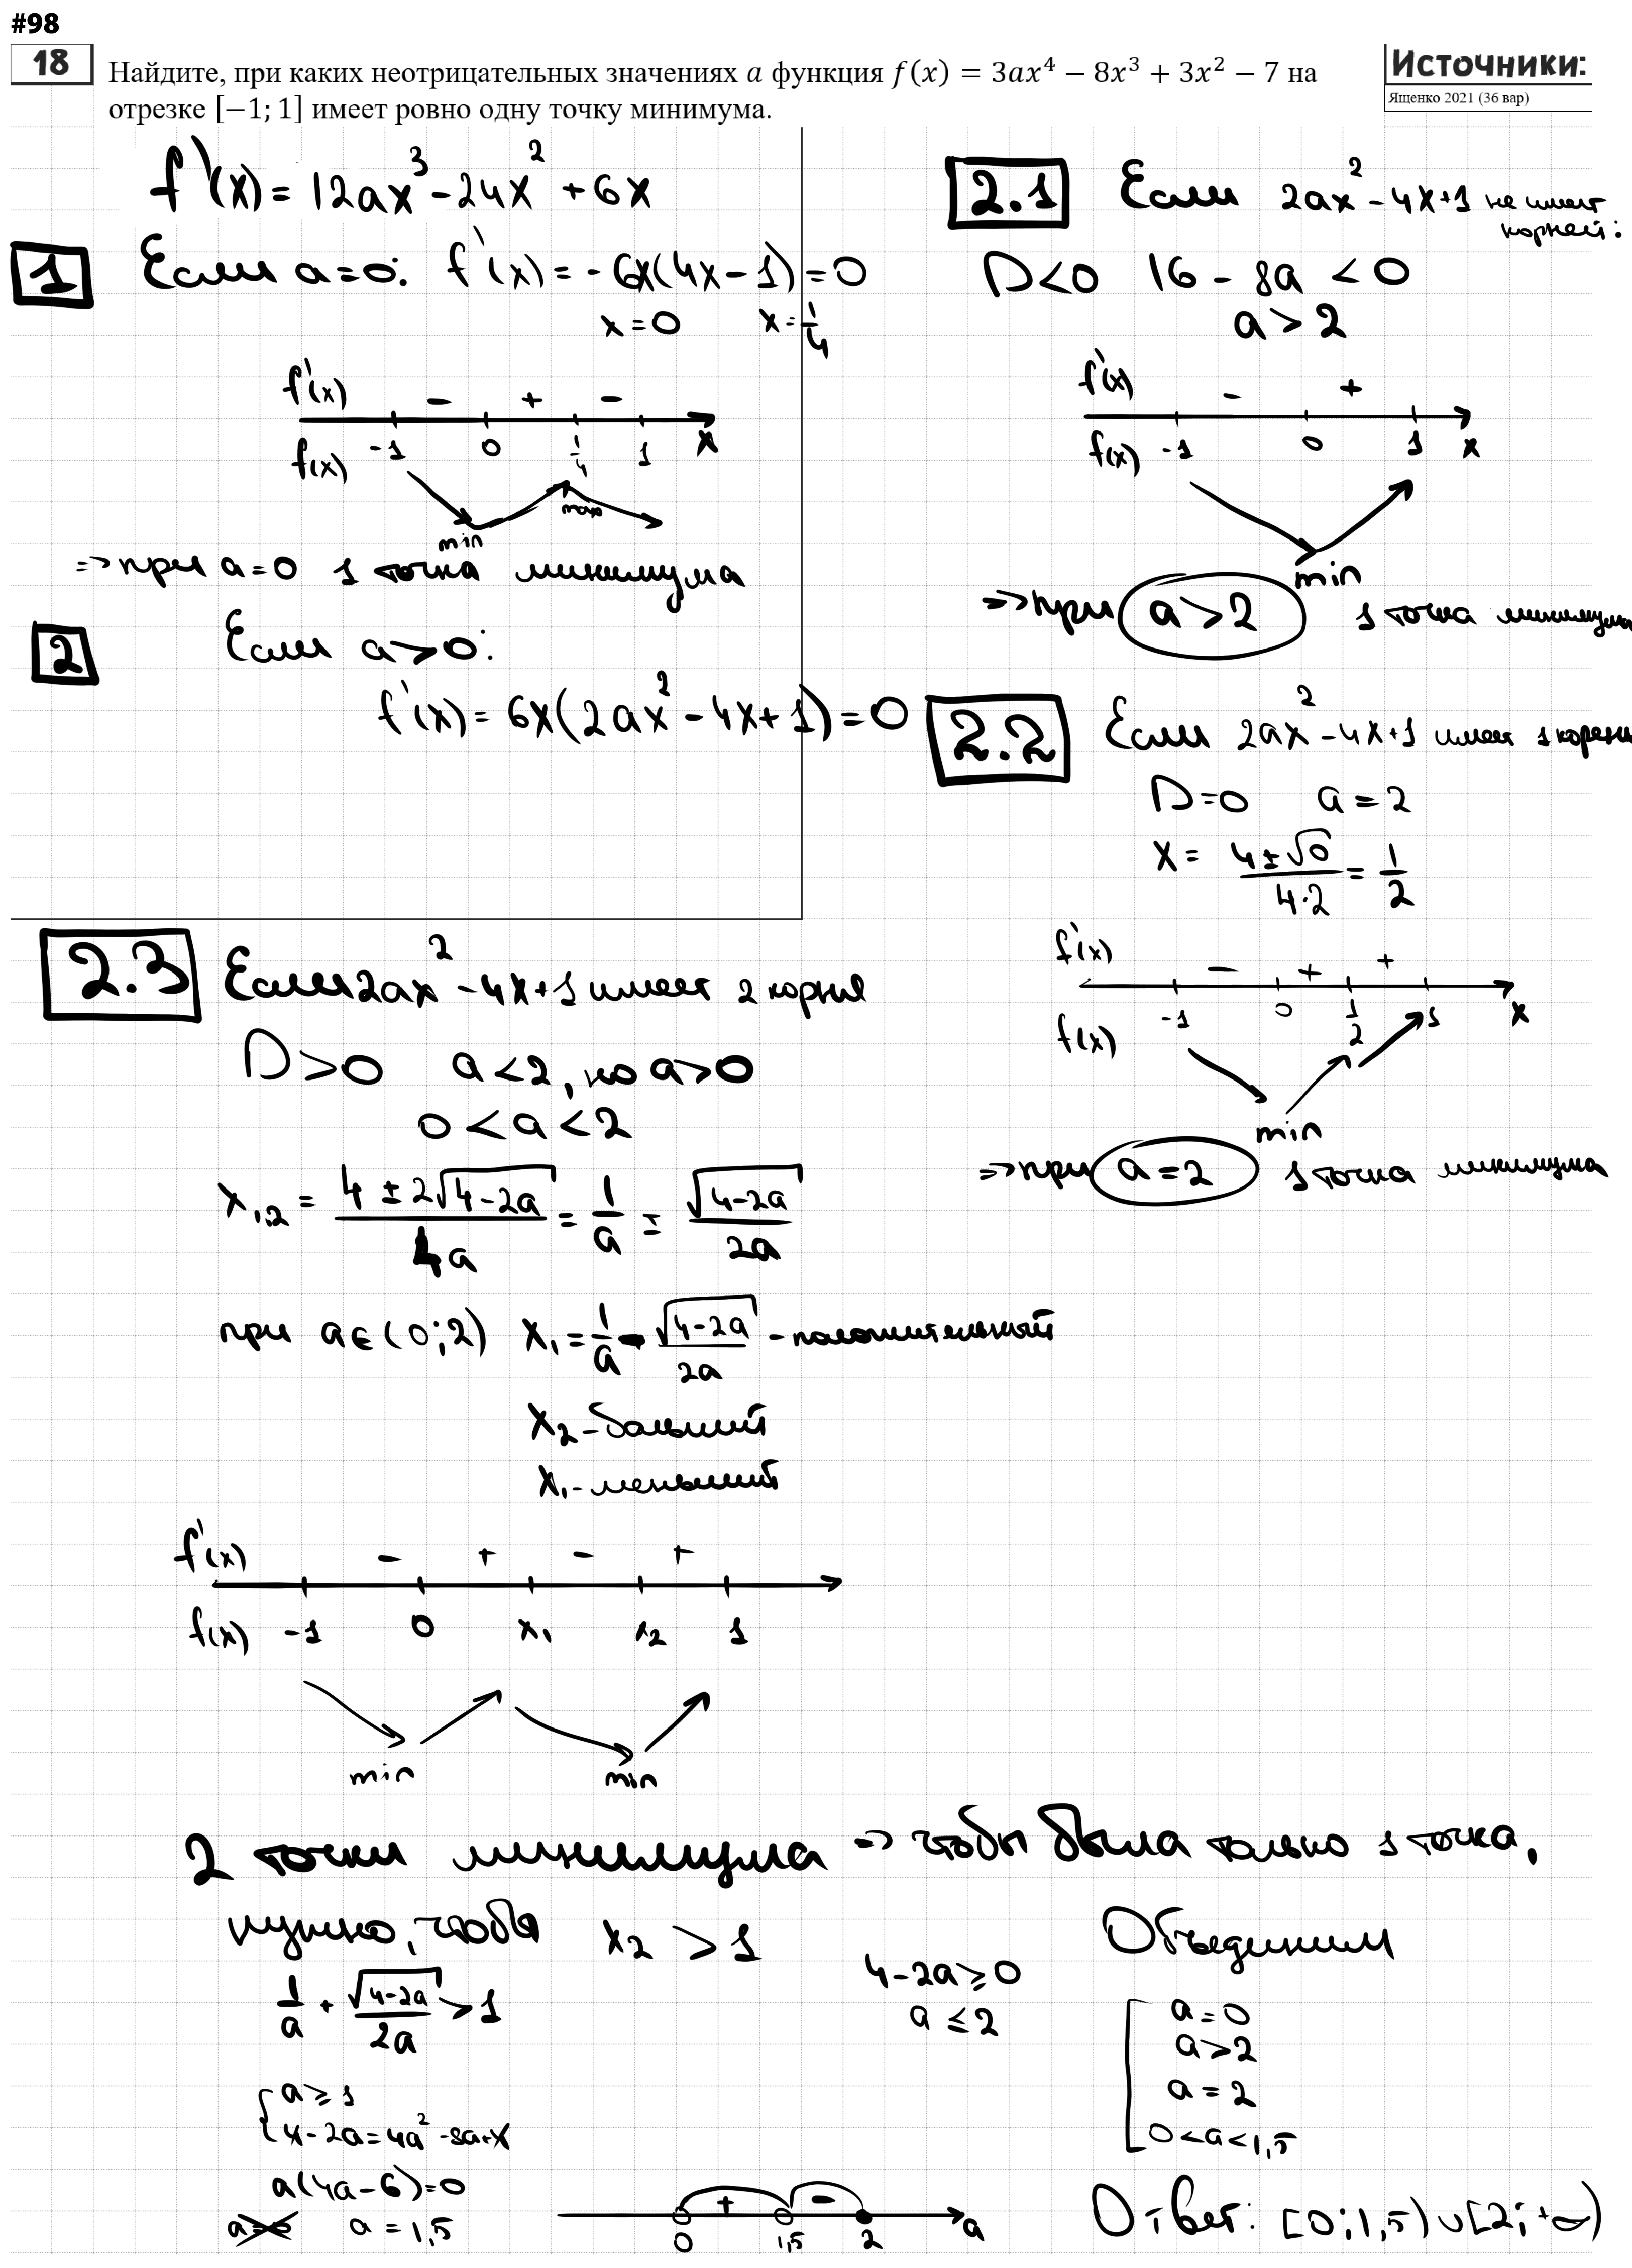 #98
18
Найдите, при каких неотрицательных значениях a функция f(x) = 3ax⁴ − 8x³ + 3x² − 7 на
отрезке [−1; 1] имеет ровно одну точку минимума.
Источники:
Ященко 2021 (36 вар)
f'(x) = 12ax³ - 24x² + 6x
1 Если a=0: f'(x) = -6x(4x-1) = 0
x=0 x=1/4
f'(x) - + -
f(x) -1 0 1/4 1 x
min max
=> при a=0 1 точка минимума
2 Если a>0:
f'(x) = 6x(2ax² - 4x + 1) = 0
2.1 Если 2ax² - 4x+1 не имеет
корней:
D<0 16 - 8a < 0
a > 2
f'(x) - +
f(x) -1 0 1 x
min
=> при a>2 1 точка минимума
2.2 Если 2ax² - 4x+1 имеет 1 корень
D=0 a=2
x = (4±√0)/(4·2) = 1/2
f'(x) - + +
f(x) -1 0 1/2 1 x
min
=> при a=2 1 точка минимума
2.3 Если 2ax² - 4x+1 имеет 2 корня
D>0 a<2, но a>0
0<a<2
x₁,₂ = (4 ± 2√(4-2a))/(4a) = 1/a ± √(4-2a)/(2a)
при a∈(0;2) x₁ = 1/a - √(4-2a)/(2a) - положительный
x₂ - больший
x₁ - меньший
f'(x) - + - +
f(x) -1 0 x₁ x₂ 1
min min
2 точки минимума => чтобы была только 1 точка,
нужно, чтобы x₂ > 1
1/a + √(4-2a)/(2a) > 1
4-2a ≥ 0
a ≤ 2
{ a ≥ 1
4-2a = 4a² - 8a+4
a(4a-6)=0
a=0 a = 1,5
+ -
0 1,5 2 a
Объединим
[ a=0
a>2
a=2
0<a<1,5
Ответ: [0;1,5)∪[2;+∞)